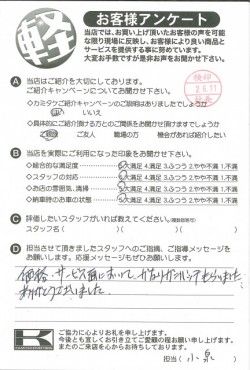 軽
お客様アンケート
当店では、お買い上げ頂いたお客様の声を可能
な限り現場に反映し、お客様により良い商品と
サービスを提供する事に努めています。
大変お手数ですが是非お声をお聞かせ下さい。
A 当店はご紹介を大切にしております。
ご紹介キャンペーンについてお聞かせ下さい。
検印
2.6.11
◇カミタケご紹介キャンペーンはありましたでしょうか
はい いいえ
◇具体的にご紹介頂ける方とのご関係をお聞かせ頂けますでしょうか
ご親戚 ご友人 職場の方 機会があれば紹介したい
B 当店を実際にご利用になった印象をお聞かせ下さい。
◇総合的な満足度 5.大満足 4.満足 3.ふつう 2.やや不満 1.不満
◇スタッフの対応 5.大満足 4.満足 3.ふつう 2.やや不満 1.不満
◇お店の雰囲気、清掃 5.大満足 4.満足 3.ふつう 2.やや不満 1.不満
◇納車時のお車の状態 5.大満足 4.満足 3.ふつう 2.やや不満 1.不満
C 評価したいスタッフがいれば教えてください。(複数回答可)
スタッフ名( )( )( )
D 担当させて頂きましたスタッフへのご指摘、ご指導メッセージを
お願いします。応援メッセージもぜひお願いします。
価格・サービス面において、かなりがんばってもらいました
ありがとうございました。
K
ご協力に心よりお礼を申し上げます。
今後とも宜しくお引き立てご愛顧の程お願い申し上げます。
またのご来店を心からお待ちしております。
担当( 小泉 )